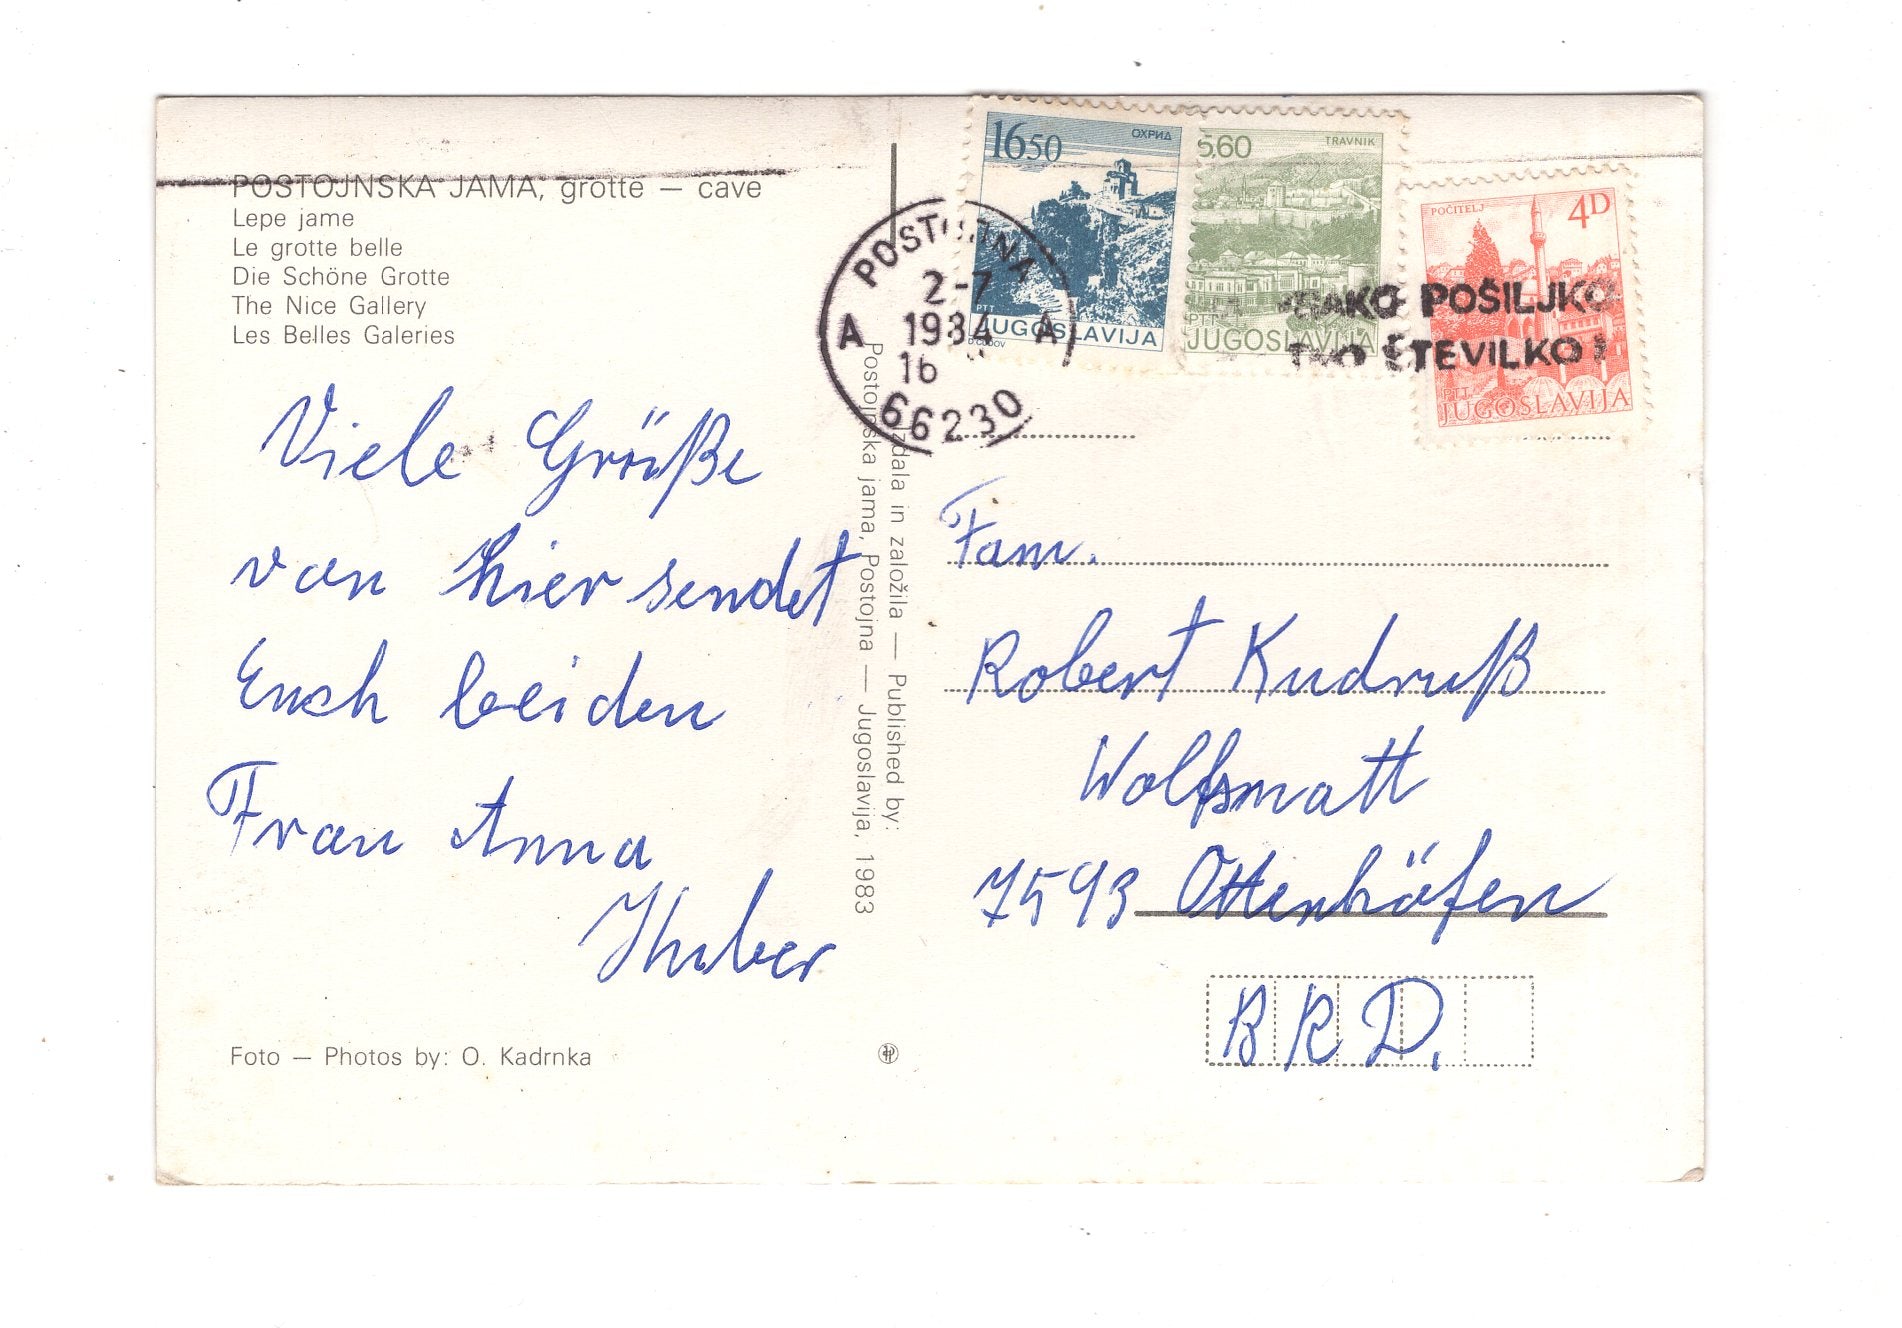 POSTOJNSKA JAMA, grotte — cave
Lepe jame
Le grotte belle
Die Schöne Grotte
The Nice Gallery
Les Belles Galeries
Viele Grüße
von hier sendet
Euch beiden
Frau Anna
Huber
Foto — Photos by: O. Kadrnka
Izdala in založila — Published by:
Postojnska jama, Postojna — Jugoslavija, 1983
1650
ОХРИД
PTT
JUGOSLAVIJA
5,60
TRAVNIK
PTT
JUGOSLAVIJA
4D
POČITELJ
PTT
JUGOSLAVIJA
POSTOJNA
2-7
A 1984 A
16
66230
POŠILJKO
ŠTEVILKO!
Fam.
Robert Kudruß
Wolfsmatt
7593 Ottenhöfen
BRD.